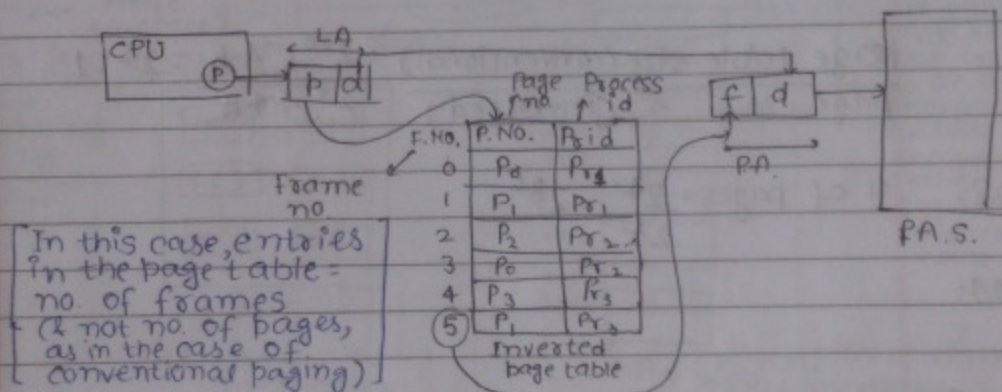 CPU
P
LA
p d
Page no.
Process id
f d
P.A.
P.A.S.
F.NO. P.NO. Prid
Frame no.
0 P0 Pr1
1 P1 Pr1
2 P2 Pr2
3 P0 Pr2
4 P3 Pr3
5 P1 Pr3
Inverted
page table
[In this case, entries
in the page table =
no. of frames
(& not no. of pages,
as in the case of
conventional paging)]